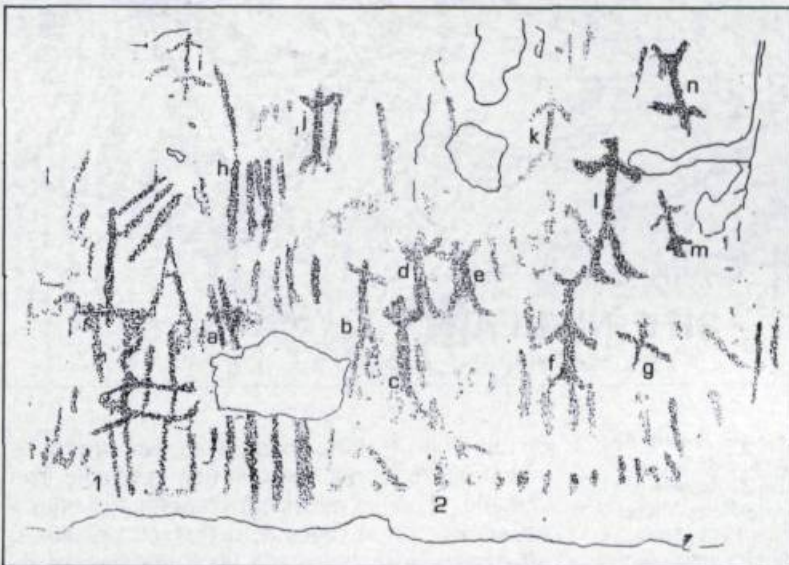 i
n
j
k
h
l
m
d
e
a
b
c
f
g
1
2